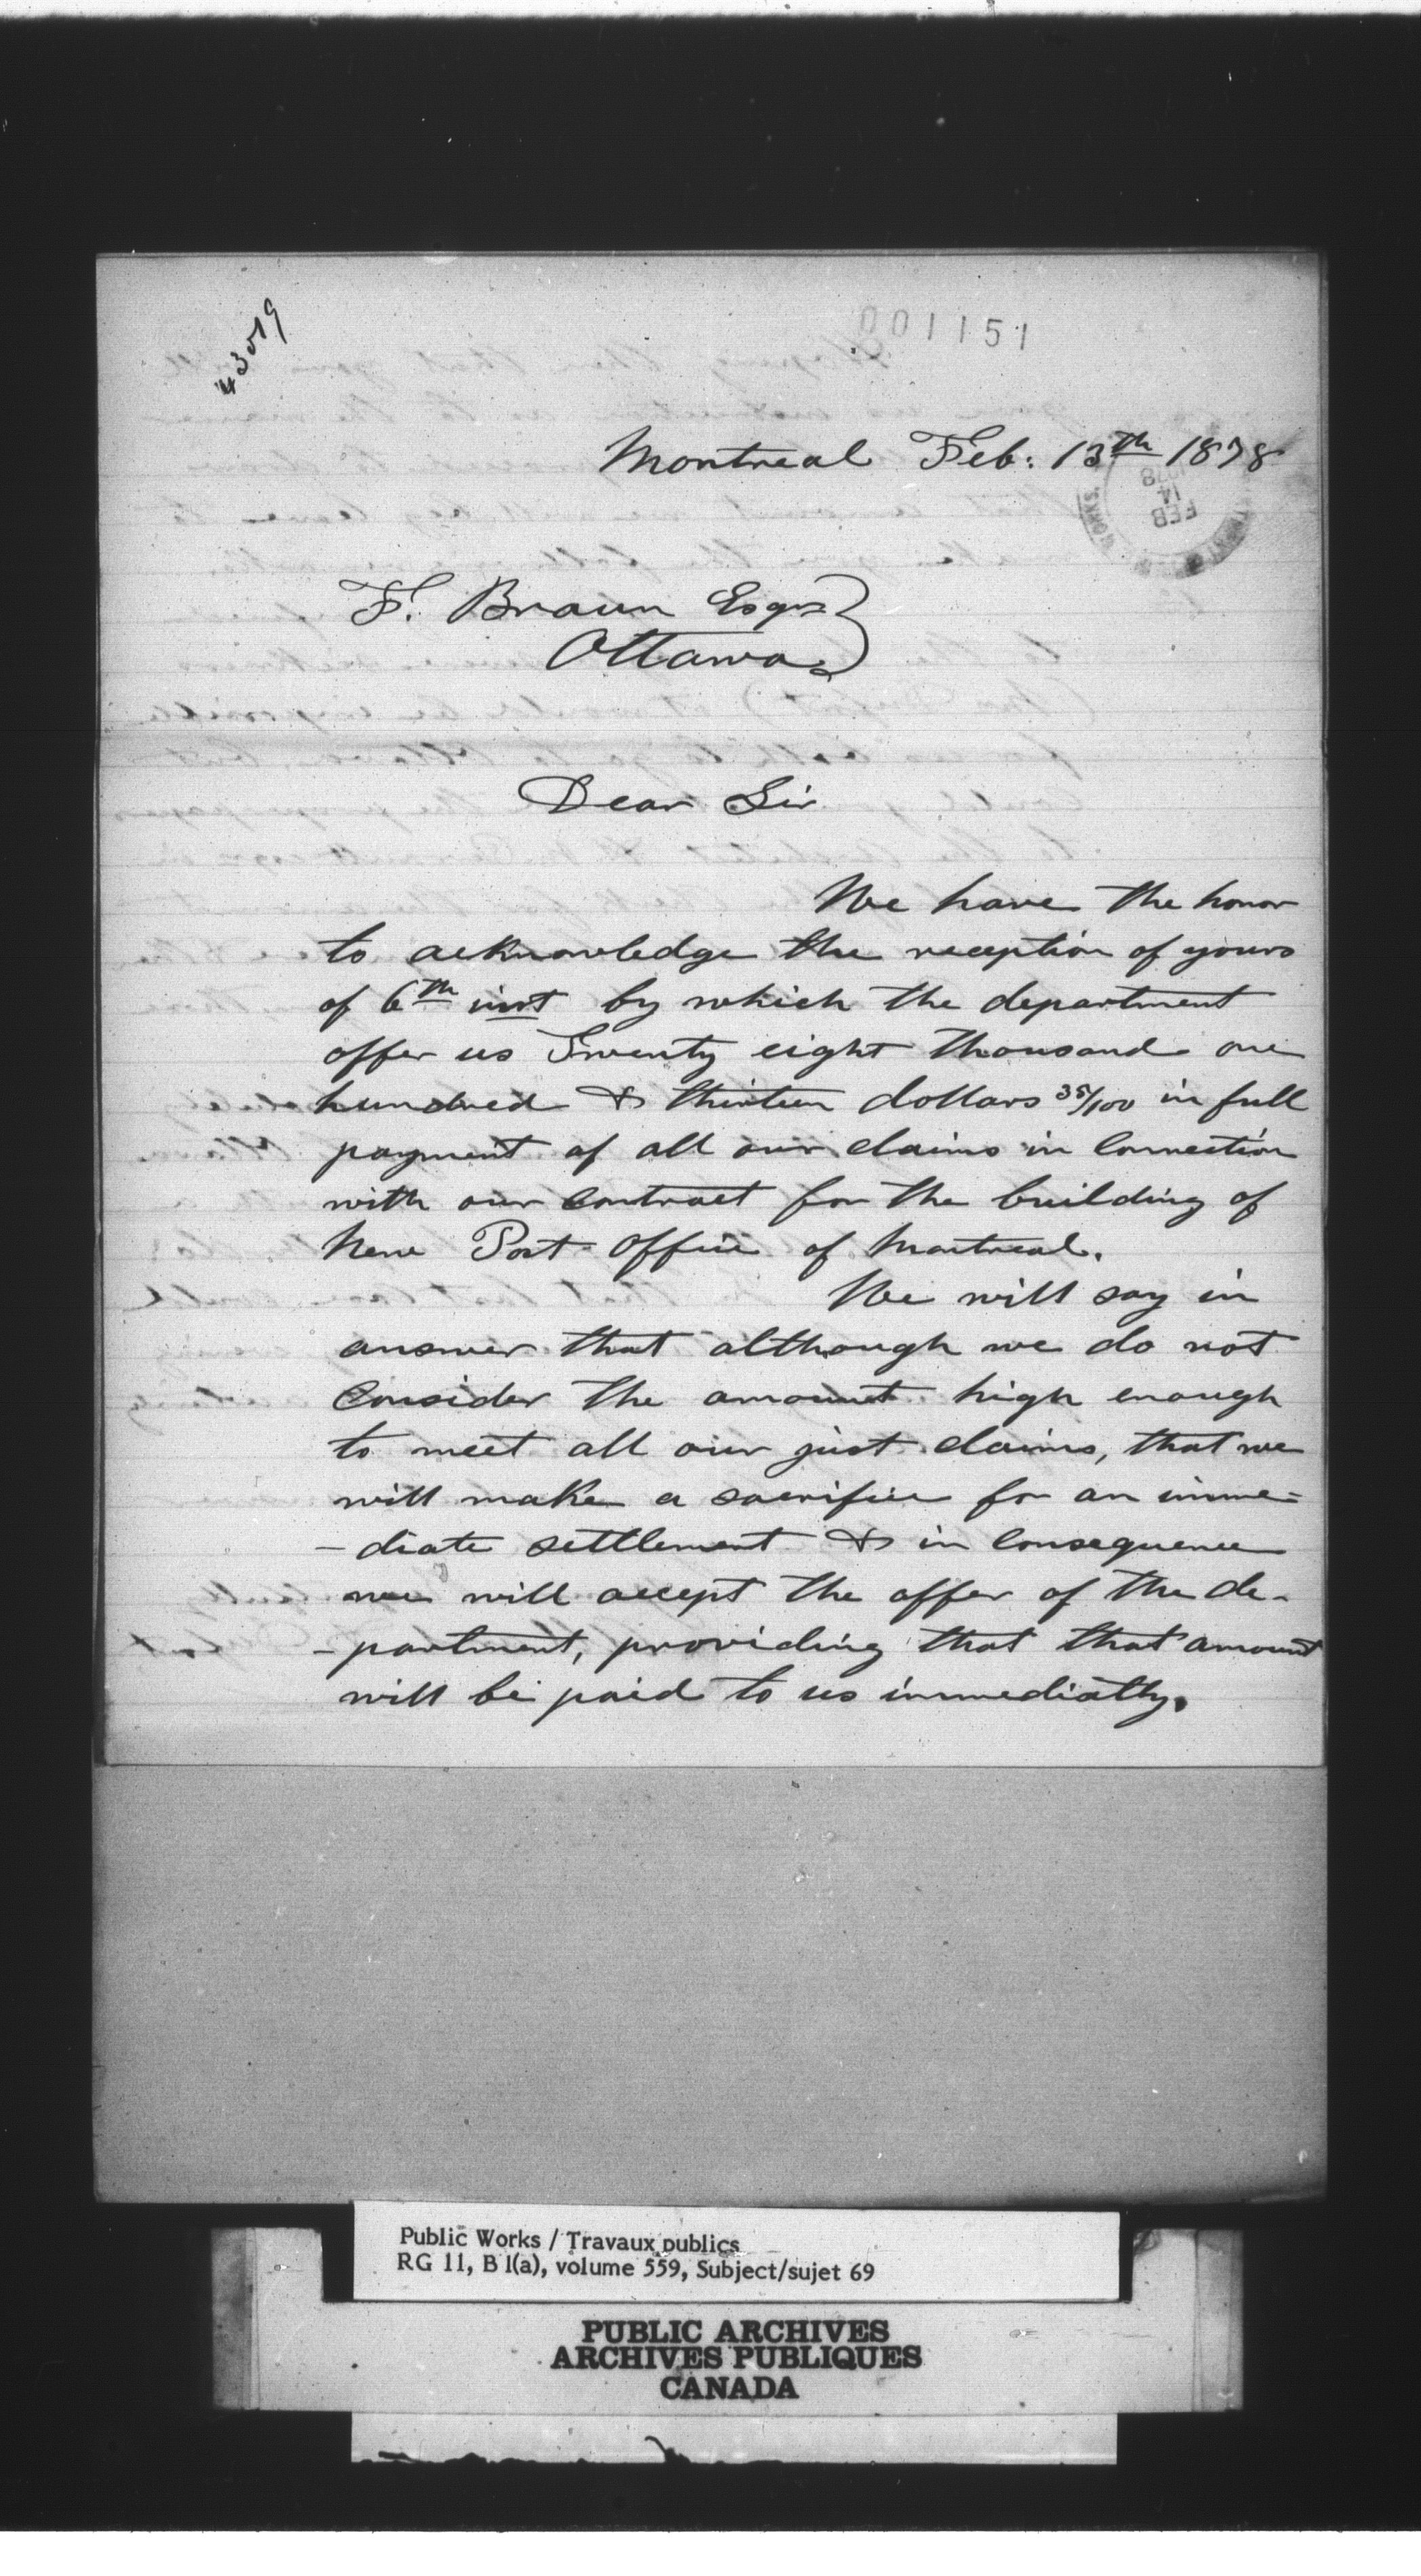 43019
001151
Montreal Feb: 13th 1878
FEB
14
1878
WORKS
F. Braun Esqre
Ottawa
Dear Sir
We have the honor
to acknowledge the reception of yours
of 6th inst by which the department
offer us Twenty eight thousand one
hundred & thirteen dollars 35/100 in full
payment of all our claims in Connection
with our contract for the building of
New Post Office of Montreal.
We will say in
answer that although we do not
Consider the amount high enough
to meet all our just claims, that we
will make a sacrifice for an imme=
-diate settlement & in Consequence
we will accept the offer of the de-
-partment, providing that that amount
will be paid to us immediatly.
Public Works / Travaux publics
RG 11, B 1(a), volume 559, Subject/sujet 69
PUBLIC ARCHIVES
ARCHIVES PUBLIQUES
CANADA